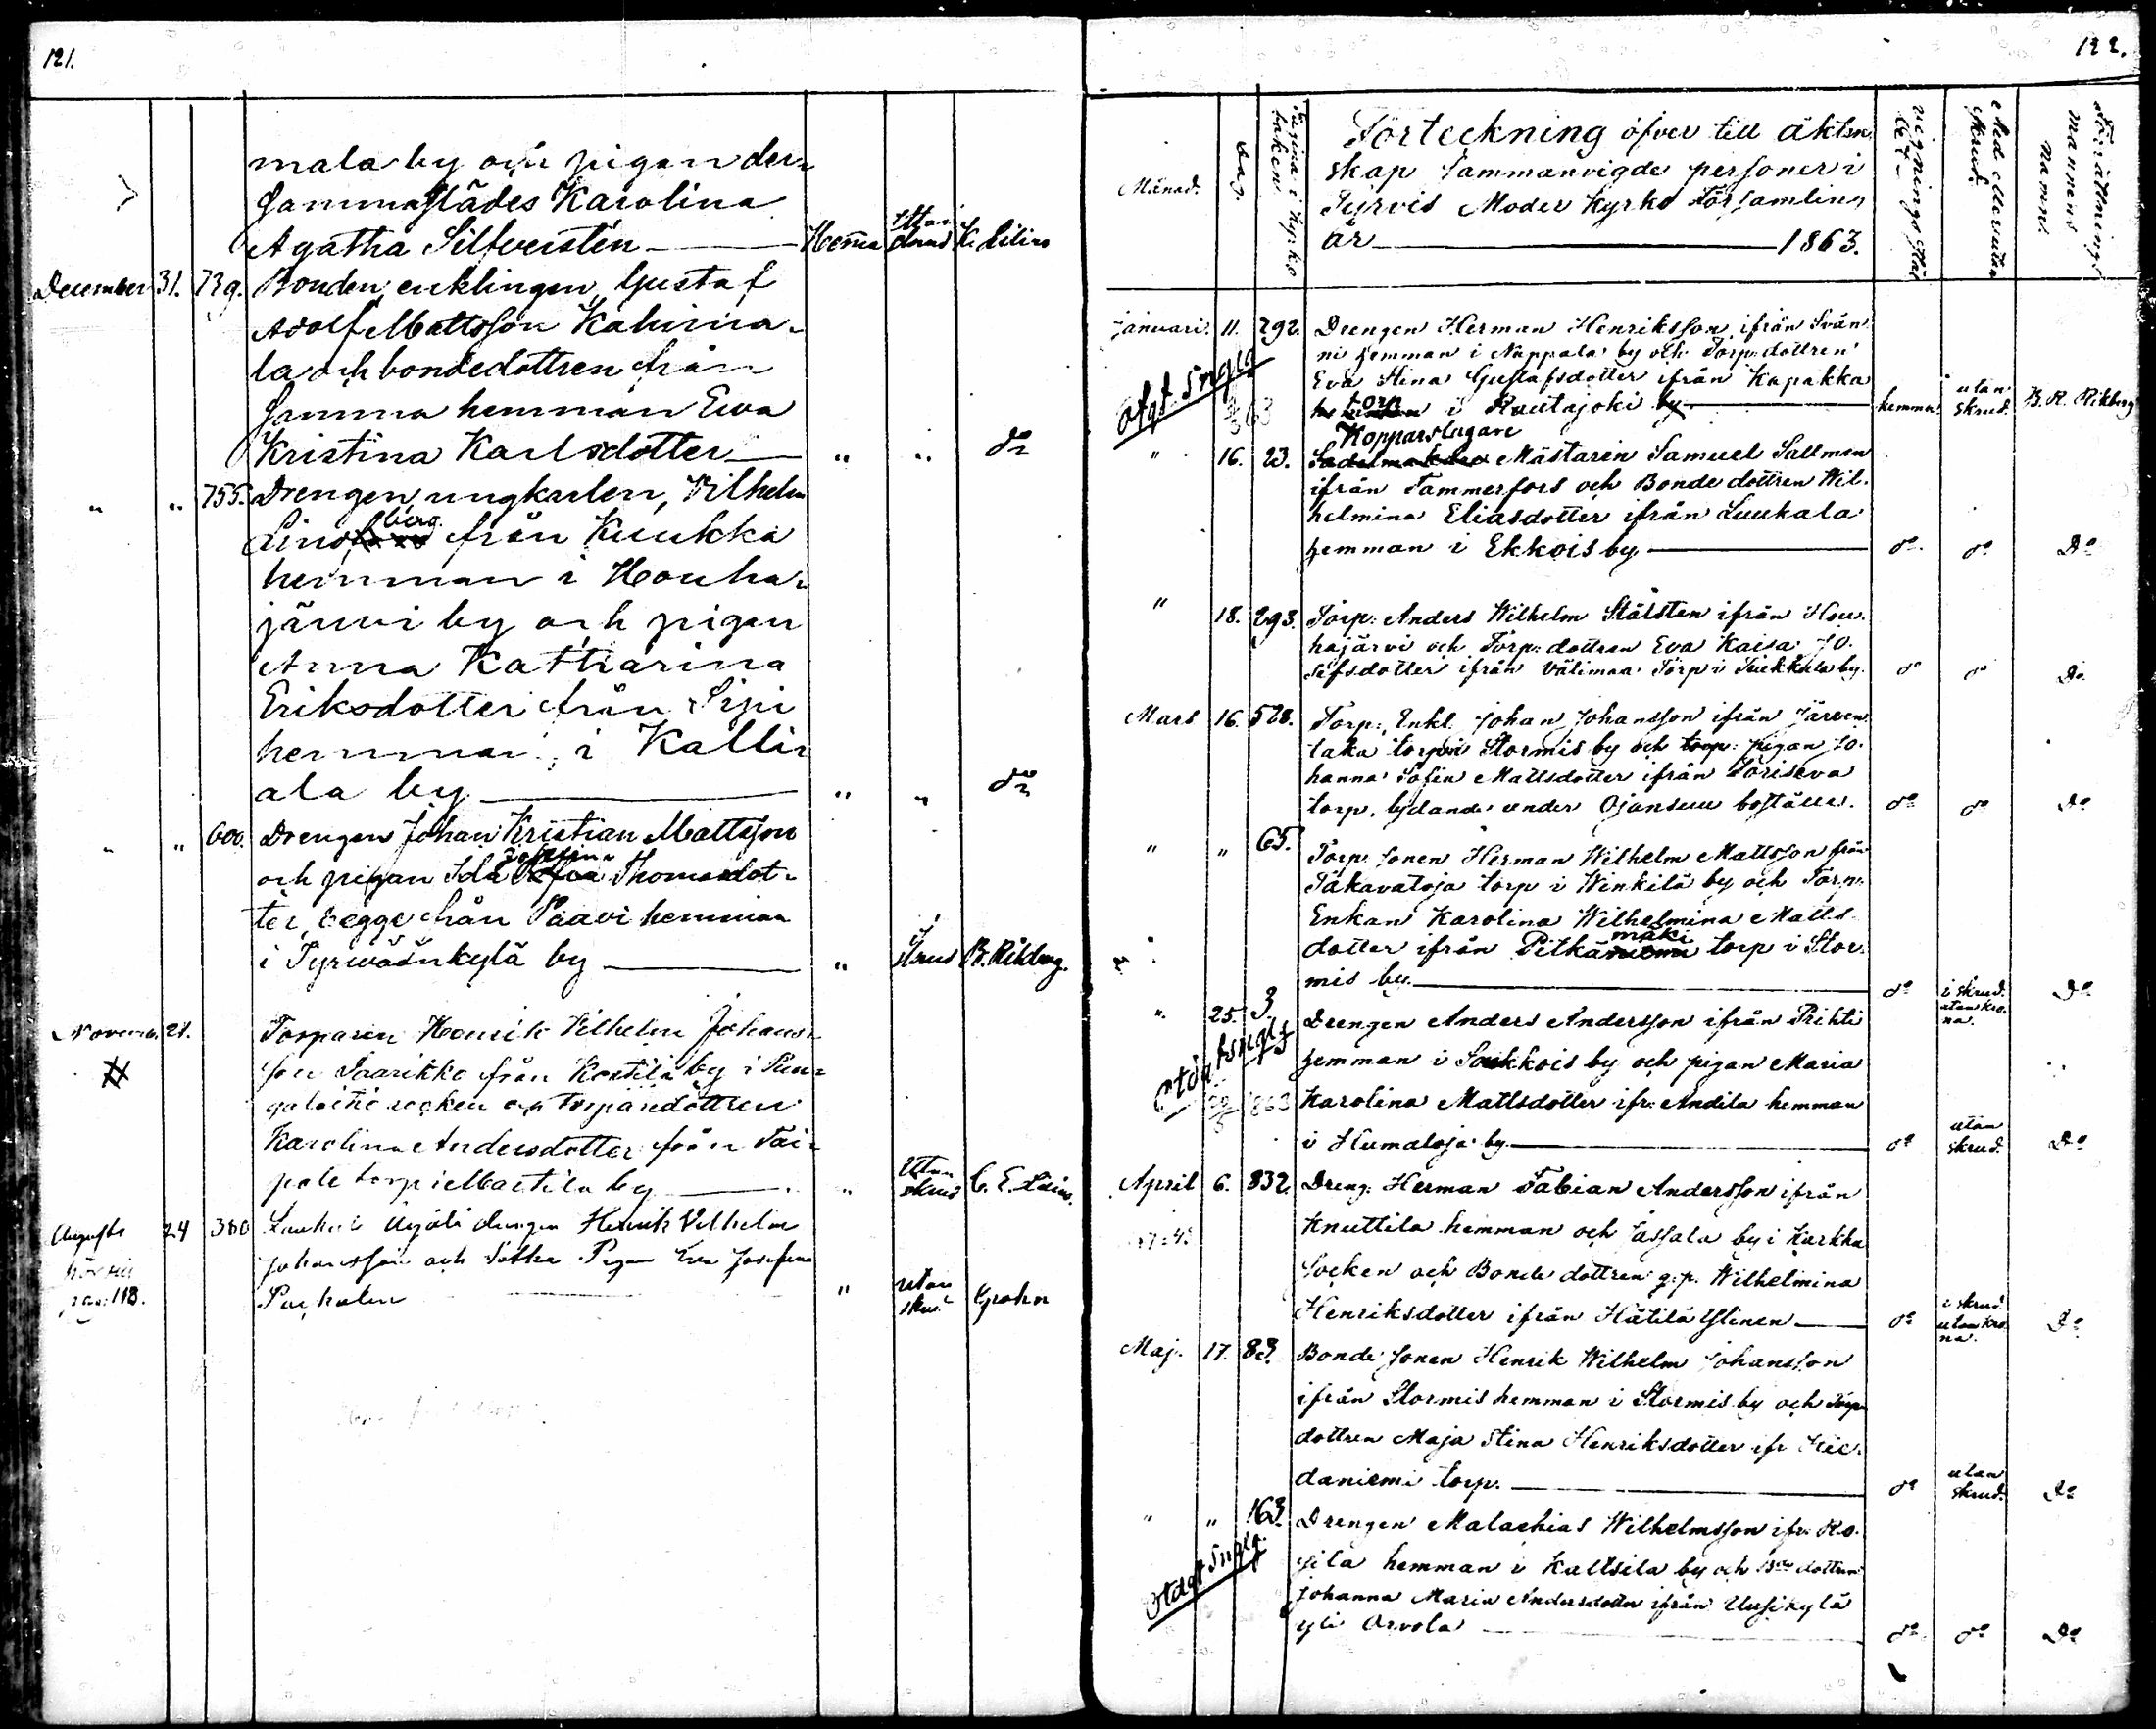 121.
mala by och pigan der-
sammastädes Karolina
Agatha Silfverstén — Hema utan skrud K. Lilius
December 31. 739. Bonden, enklingen, Gustaf
Adolf Mattsson Kahma-
la och bondedottren från
samma hemman Ewa
Kristina Karlsdotter — " " do
" " 755. Drengen, ungkarlen, Vilhelm
Lindberg från Kuukka
hemman i Houha-
järwi by och pigan
Anna Katharina
Eriksdotter från Sipi
hemman i Kalli-
ala by — " " do
" " 600. Drengen Johan Kristian Mattsson
och pigan Ida Josefina Thomasdot-
ter, begge från Paavi hemman
i Tyrwäänkylä by — " i skrud B. Rikberg.
Novemb. 21. Torparen Henrik Vilhelm Johans-
son Saarikko från Kostila by i Pun-
galaitio socken och torparedottren
Karolina Andersdotter från Tai-
pale torp i Martila by — " Utan skrud C. E. Lilius.
Augusti 24 380 drengen Henrik Vilhelm
Johansson och Pigan Eva Josefina
" utan skrud Grohn
118.
122.
Månad. Dag. Pagina i Kyrko boken
Förteckning öfver till äkten
skap sammanvigde personer i
Tyrvis Moder Kyrko Församling
år — 1863.
vigningsstäl let
Med eller utan skrud.
Förrättnings mannens namn.
Januari. 11. 292. Drengen Herman Henriksson ifrån Svän
ni hemman i Nuppala by och Torp: dottren
Eva Stina Gustafsdotter ifrån Kapakka
torp i Rautajoki by — hemma. utan skrud. B. R. Rikberg
" 16. 23. Kopparslagare Mästaren Samuel Sallmen
ifrån Tammerfors och Bonde dottren Wil-
helmina Eliasdotter ifrån Luukala
hemman i Ekkois by — do do Do
" 18. 293. Torp: Anders Wilhelm Stålsten ifrån Hou-
hajärvi och Torp: dottren Eva Kaisa Jo-
sefsdotter ifrån Välimaa Torp i by. do do Do
Mars 16. 528. Torp: Enkl. Johan Johansson ifrån Järven
taka torp i Stormis by och torp: pigan Jo-
hanna Sofia Mattsdotter ifrån Soriseva
torp, lydande under Ojansuu boställe. do do Do
" " 65. Torp: sonen Herman Wilhelm Mattsson från
Takavatoja torp i Winkilä by och Torp:
Enkan Karolina Wilhelmina Matts-
dotter ifrån Pitkämäki torp i Stor-
mis by. — do i skrud. utan kro- na. Do
" 25. 3. Drengen Anders Andersson ifrån Prihti
hemman i Soukkois by och pigan Maria
Karolina Mattsdotter ifr: Andila hemman
i Humaloja by — do utan skrud. Do
April 6. 832. Dreng: Herman Fabian Andersson ifrån
Knuttila hemman och Jassala by i Karkku
Socken och Bonde dottren g.p. Wilhelmina
Henriksdotter ifrån Hätilä Yllinen — do i skrud. utan kro- na. Do
Maj. 17. 83. Bonde sonen Henrik Wilhelm Johansson
ifrån Stormis hemman i Stormis by och Torp
dottren Maja Stina Henriksdotter ifr Hie-
daniemi torp. — do utan skrud. Do
" " 163. Drengen Malachias Wilhelmsson ifr: Ro-
gila hemman i Kaltsila by och Bde dottren
Johanna Maria Andersdotter ifrån Uusikylä
yli Arvola — do do Do